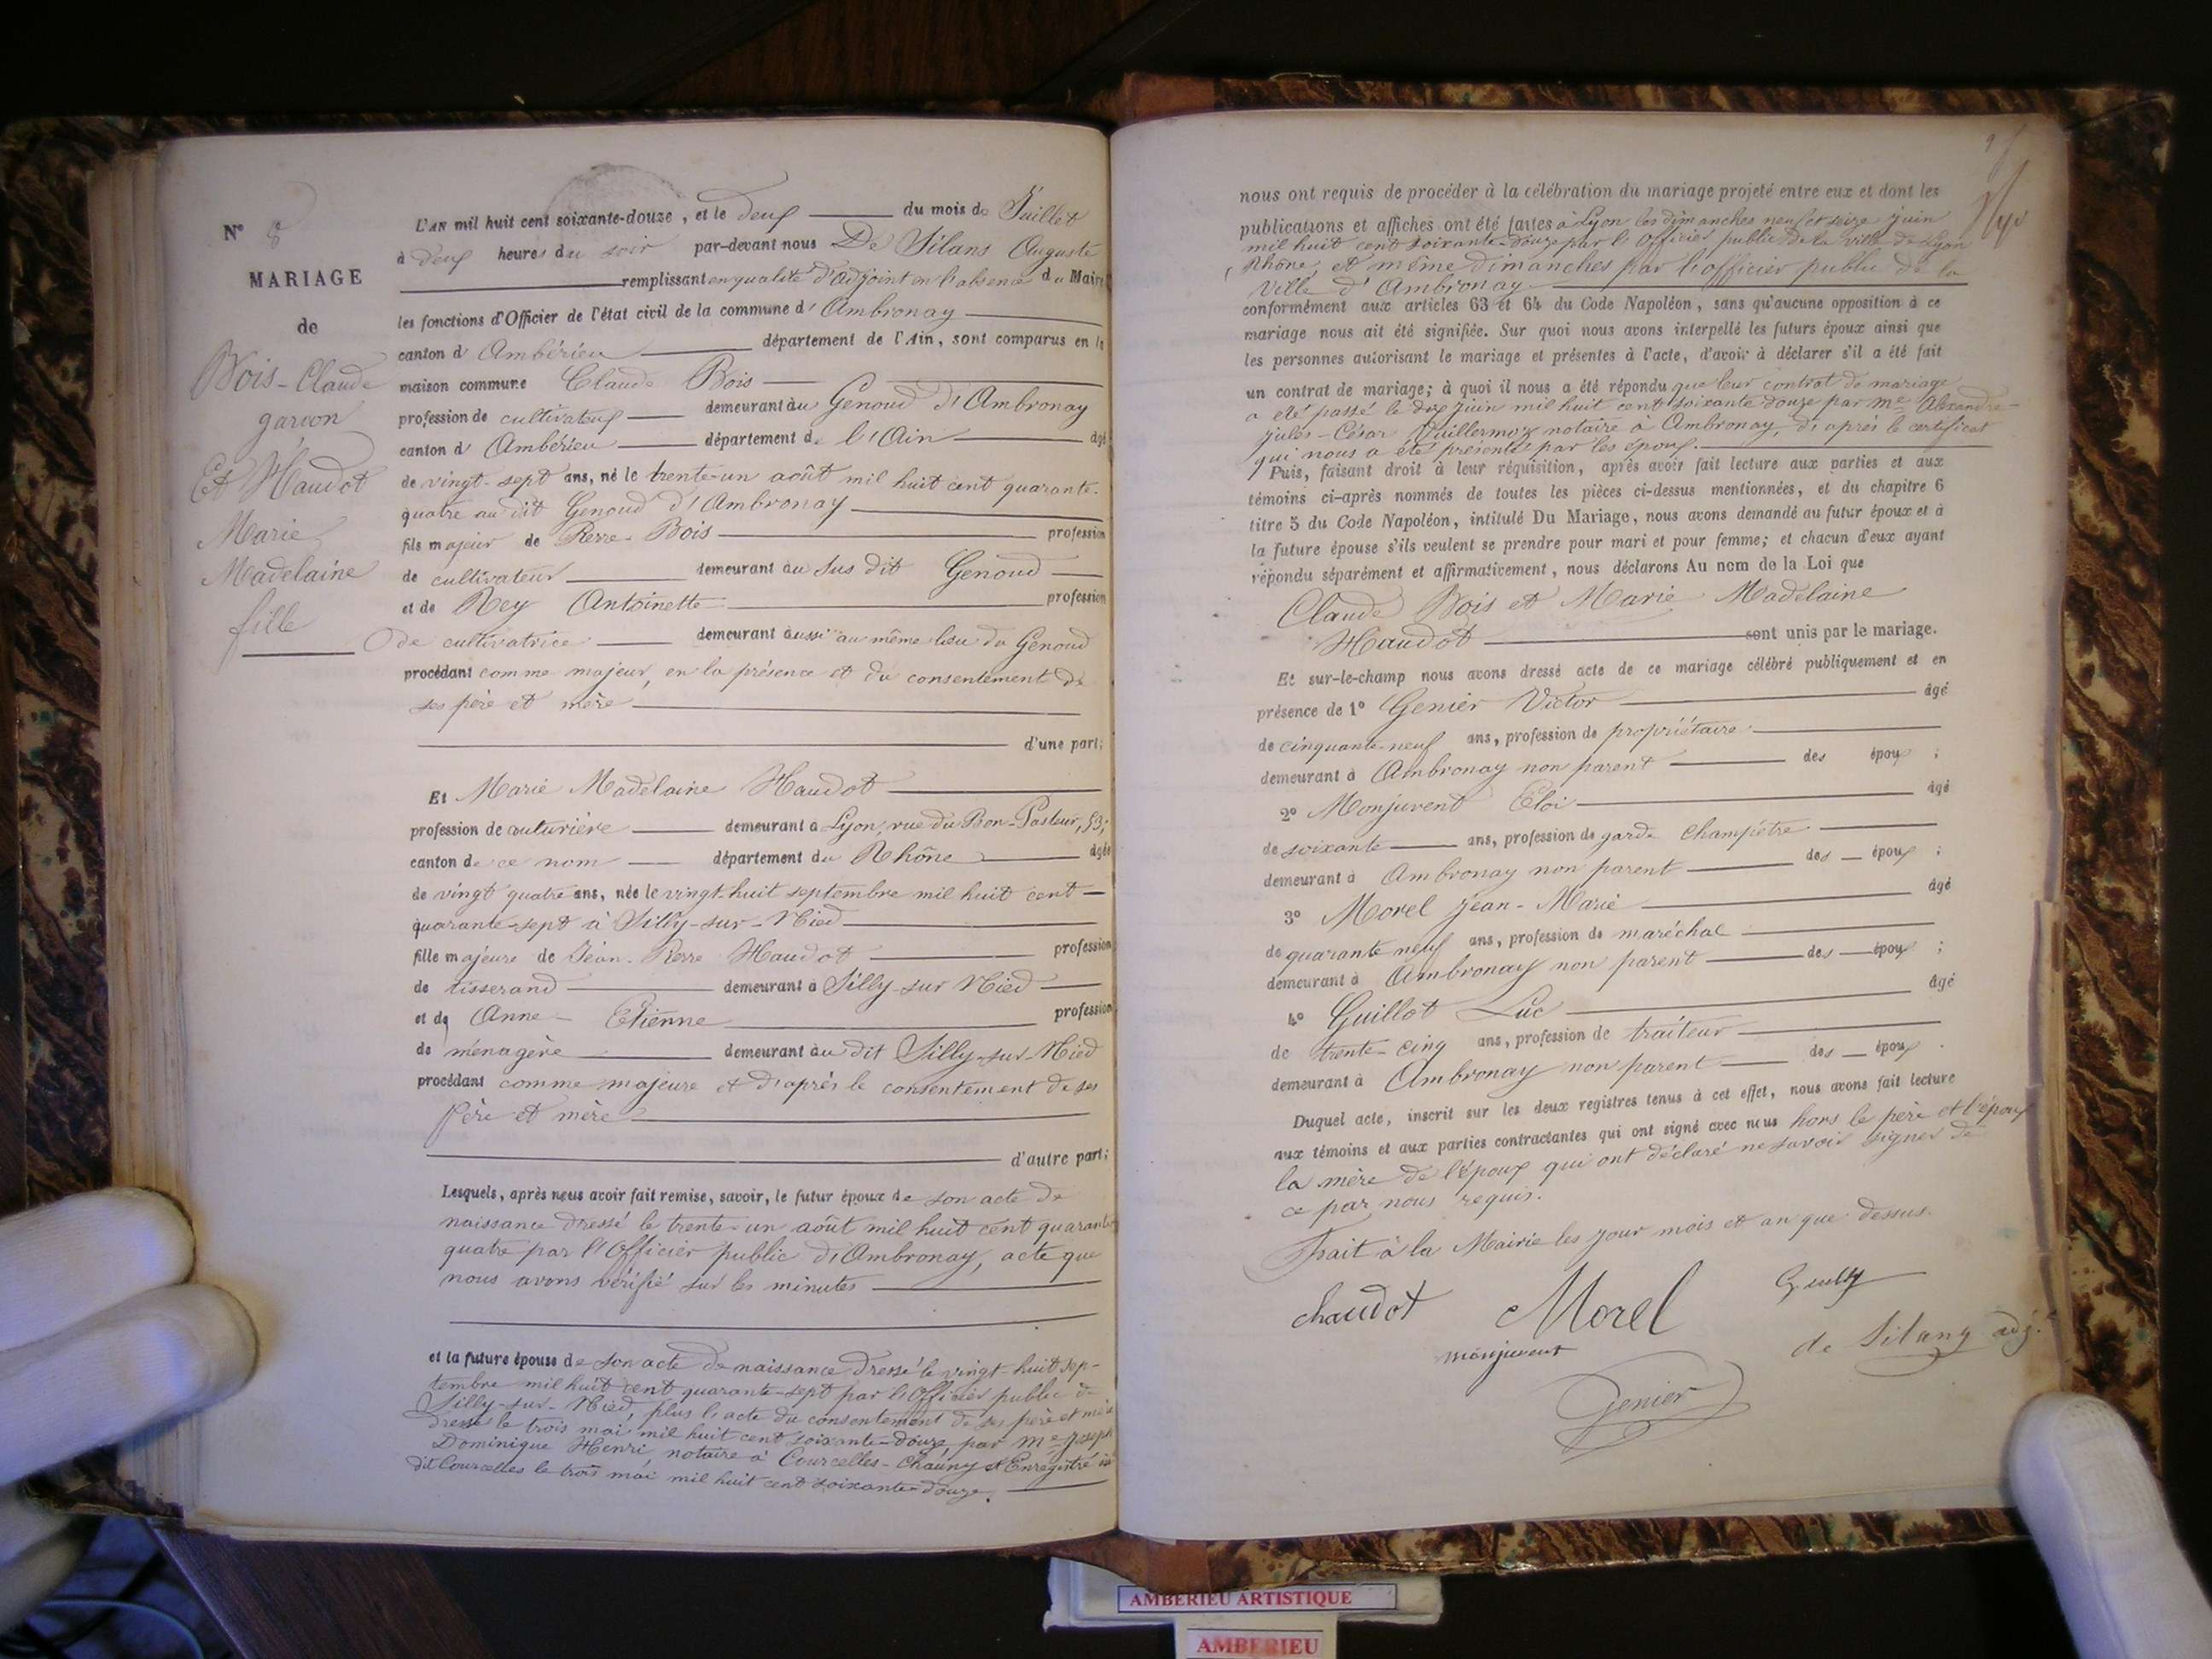 N° 8
MARIAGE
de
Bois-Claude
garcon
Et Haudot
Marie
Madelaine
fille
L'AN mil huit cent soixante-douze, et le deux du mois de Juillet
à deux heures du soir par-devant nous De Silans Auguste
remplissant en qualité d'adjoint en l'absence du Maire
les fonctions d'Officier de l'état civil de la commune d'Ambronay
canton d'Ambérieu département de l'Ain, sont comparus en la
maison commune Claude Bois
profession de cultivateur demeurant au Genoud d'Ambronay
canton d'Ambérieu département de l'Ain âgé
de vingt-sept ans, né le trente-un août mil huit cent quarante-
quatre au dit Genoud d'Ambronay
fils majeur de Pierre-Bois profession
de cultivateur demeurant au sus dit Genoud
et de Rey Antoinette profession
de cultivatrice demeurant aussi au même lieu du Genoud
procédant comme majeur, en la présence et du consentement de
ses père et mère
d'une part;
Et Marie Madelaine Haudot
profession de couturière demeurant à Lyon, rue du Bon-Pasteur, 53;
canton de ce nom département du Rhône âgée
de vingt quatre ans, née le vingt-huit septembre mil huit cent
quarante-sept à Silly-sur-Nied
fille majeure de Jean-Pierre Haudot profession
de tisserand demeurant à Silly-sur Nied
et de Anne-Etienne profession
de ménagère demeurant au dit Silly-sur-Nied
procédant comme majeure et d'après le consentement de ses
père et mère
d'autre part;
Lesquels, après nous avoir fait remise, savoir, le futur époux de son acte de
naissance dressé le trente-un août mil huit cent quarante
quatre par l'Officier public d'Ambronay, acte que
nous avons vérifié sur les minutes
et la future épouse de son acte de naissance dressé le vingt-huit sep-
tembre mil huit cent quarante-sept par l'Officier public de
Silly-sur-Nied, plus l'acte du consentement de ses père et mère
dressé le trois mai mil huit cent soixante-douze par Me Joseph
Dominique Henri, notaire à Courcelles-Chauny et Enregistré au
dit Courcelles le trois mai mil huit cent soixante-douze.
nous ont requis de procéder à la célébration du mariage projeté entre eux et dont les
publications et affiches ont été faites à Lyon les dimanches neuf et seize juin
mil huit cent soixante-douze par l'Officier public de la ville de Lyon
Rhône, et même dimanches par l'officier public de la
ville d'Ambronay
conformément aux articles 63 et 64 du Code Napoléon, sans qu'aucune opposition à ce
mariage nous ait été signifiée. Sur quoi nous avons interpellé les futurs époux ainsi que
les personnes autorisant le mariage et présentes à l'acte, d'avoir à déclarer s'il a été fait
un contrat de mariage; à quoi il nous a été répondu que leur contrat de mariage
a été passé le dix juin mil huit cent soixante douze par Me Alexandre-
Jules-César Vuillermoz notaire à Ambronay, d'après le certificat
qui nous a été présenté par les époux.
Puis, faisant droit à leur réquisition, après avoir fait lecture aux parties et aux
témoins ci-après nommés de toutes les pièces ci-dessus mentionnées, et du chapitre 6
titre 5 du Code Napoléon, intitulé Du Mariage, nous avons demandé au futur époux et à
la future épouse s'ils veulent se prendre pour mari et pour femme; et chacun d'eux ayant
répondu séparément et affirmativement, nous déclarons Au nom de la Loi que
Claude Bois et Marie Madelaine
Haudot sont unis par le mariage.
Et sur-le-champ nous avons dressé acte de ce mariage célébré publiquement et en
présence de 1° Genier Victor âgé
de cinquante-neuf ans, profession de propriétaire
demeurant à Ambronay non parent des époux;
2° Monjuvent Eloi âgé
de soixante ans, profession de garde champêtre
demeurant à Ambronay non parent des époux;
3° Morel Jean-Marie âgé
de quarante neuf ans, profession de maréchal
demeurant à Ambronay non parent des époux;
4° Guillot Luc âgé
de trente-cinq ans, profession de traiteur
demeurant à Ambronay non parent des époux.
Duquel acte, inscrit sur les deux registres tenus à cet effet, nous avons fait lecture
aux témoins et aux parties contractantes qui ont signé avec nous hors le père et l'époux
la mère de l'époux qui ont déclaré ne savoir signer de
ce par nous requis.
Fait à la Mairie les jour mois et an que dessus.
chaudot Morel
monjuvent de Silans adj.t
Genier
AMBERIEU ARTISTIQUE
AMBERIEU